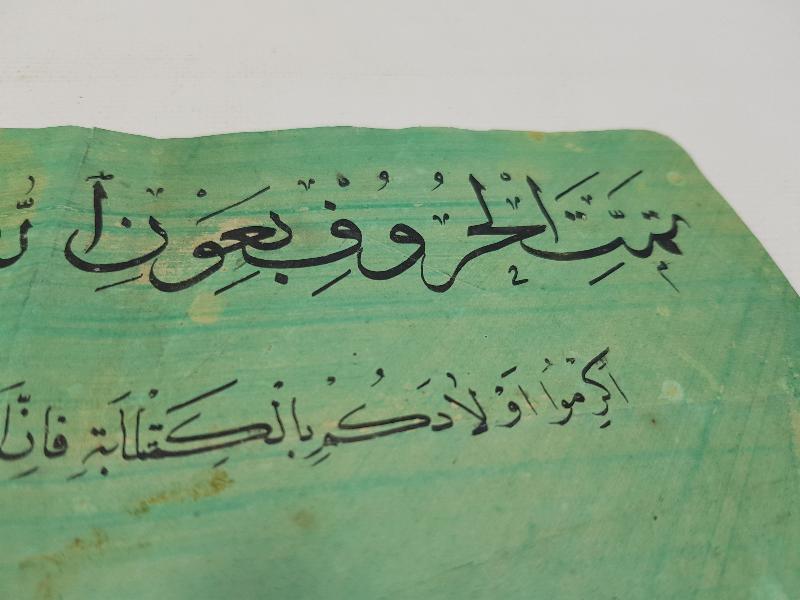 تَمَّتِ الْحُرُوفِ بِعَوْنِ
اَكْرِمُوا اَوْلَادَكُمْ بِالْكِتَابَةِ فَاِنَّ